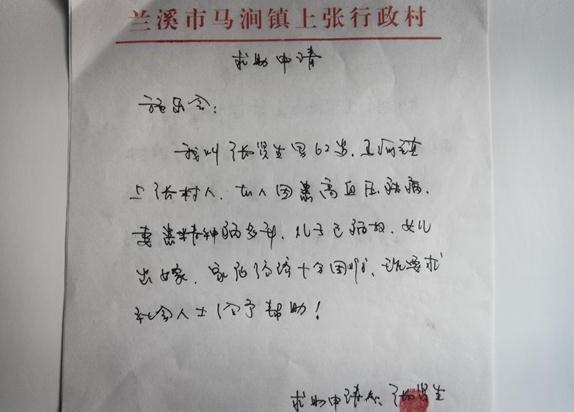 兰溪市马涧镇上张行政村
求助申请
施乐会：
我叫张贤生男62岁，马涧镇
上张村人，本人因患高血压脑病，
妻患精神病多年，儿子已病故，女儿
出嫁，家庭经济十分困难，现要求
社会人士给予帮助！
求助申请人：张贤生